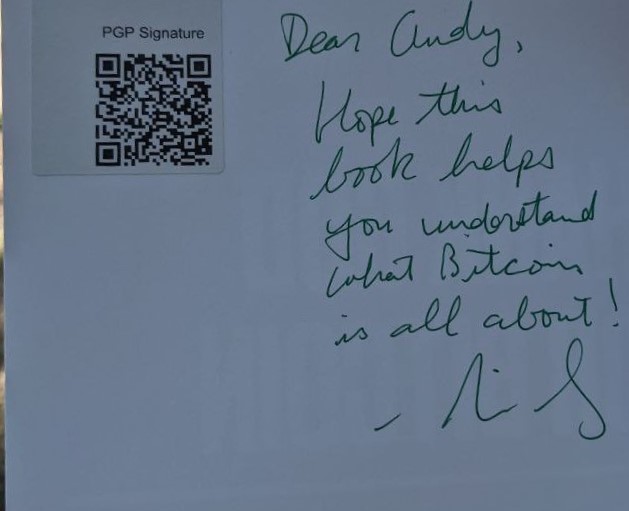 PGP Signature
Dear Andy,
Hope this
book helps
you understand
what Bitcoin
is all about!